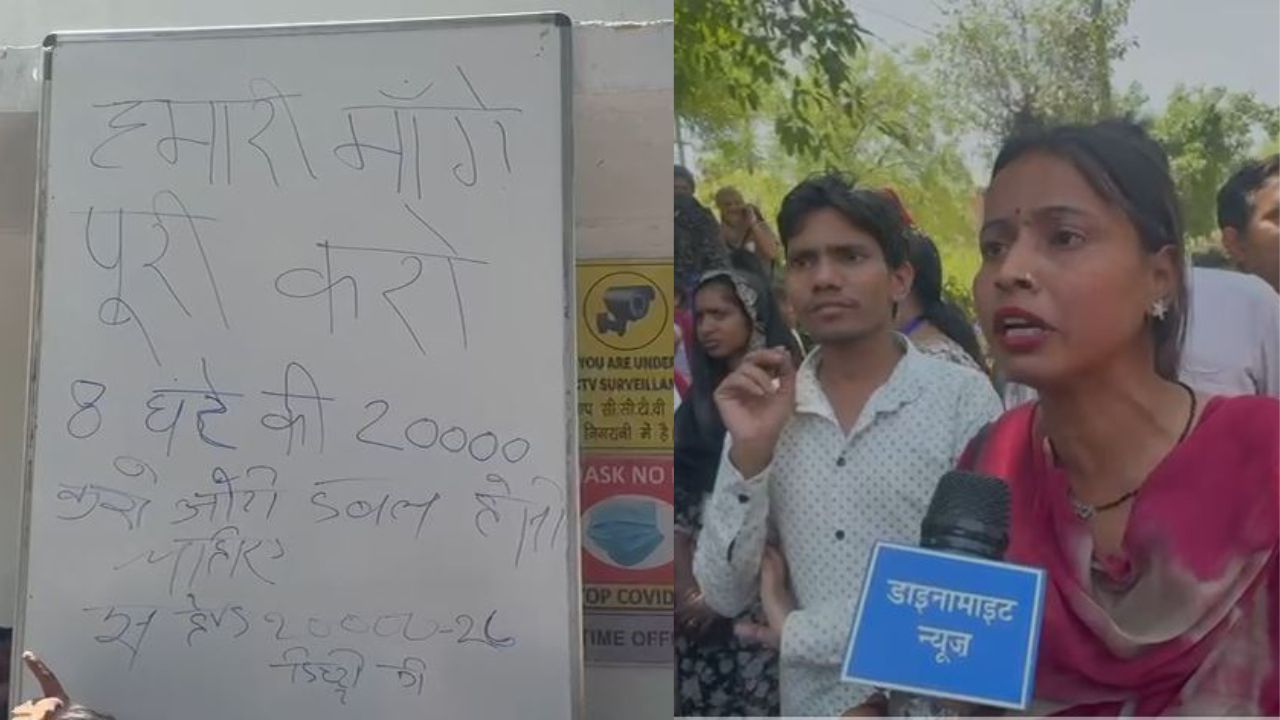 हमारी माँगे
पूरी करो
8 घंटे की 20000
करो ओटी डबल होनी
चाहिए
20000-26
की
YOU ARE UNDE
CTV SURVEILLA
प सी.सी.टी.वी
निगरानी में है
ASK NO
OP COVID
TIME OFF
डाइनामाइट
न्यूज़